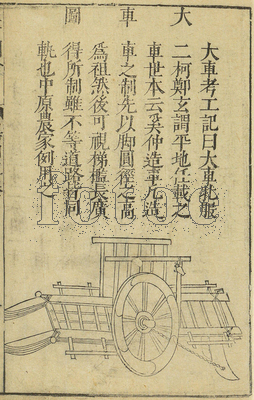 大車圖
大車考工記曰大車牝服
二柯鄭玄謂平地任載之
車世本云奚仲造車凡造
車之制先以脚圓徑之高
為祖然後可視梯檻長廣
得所制雖不等道路皆同
軌也中原農家例用之